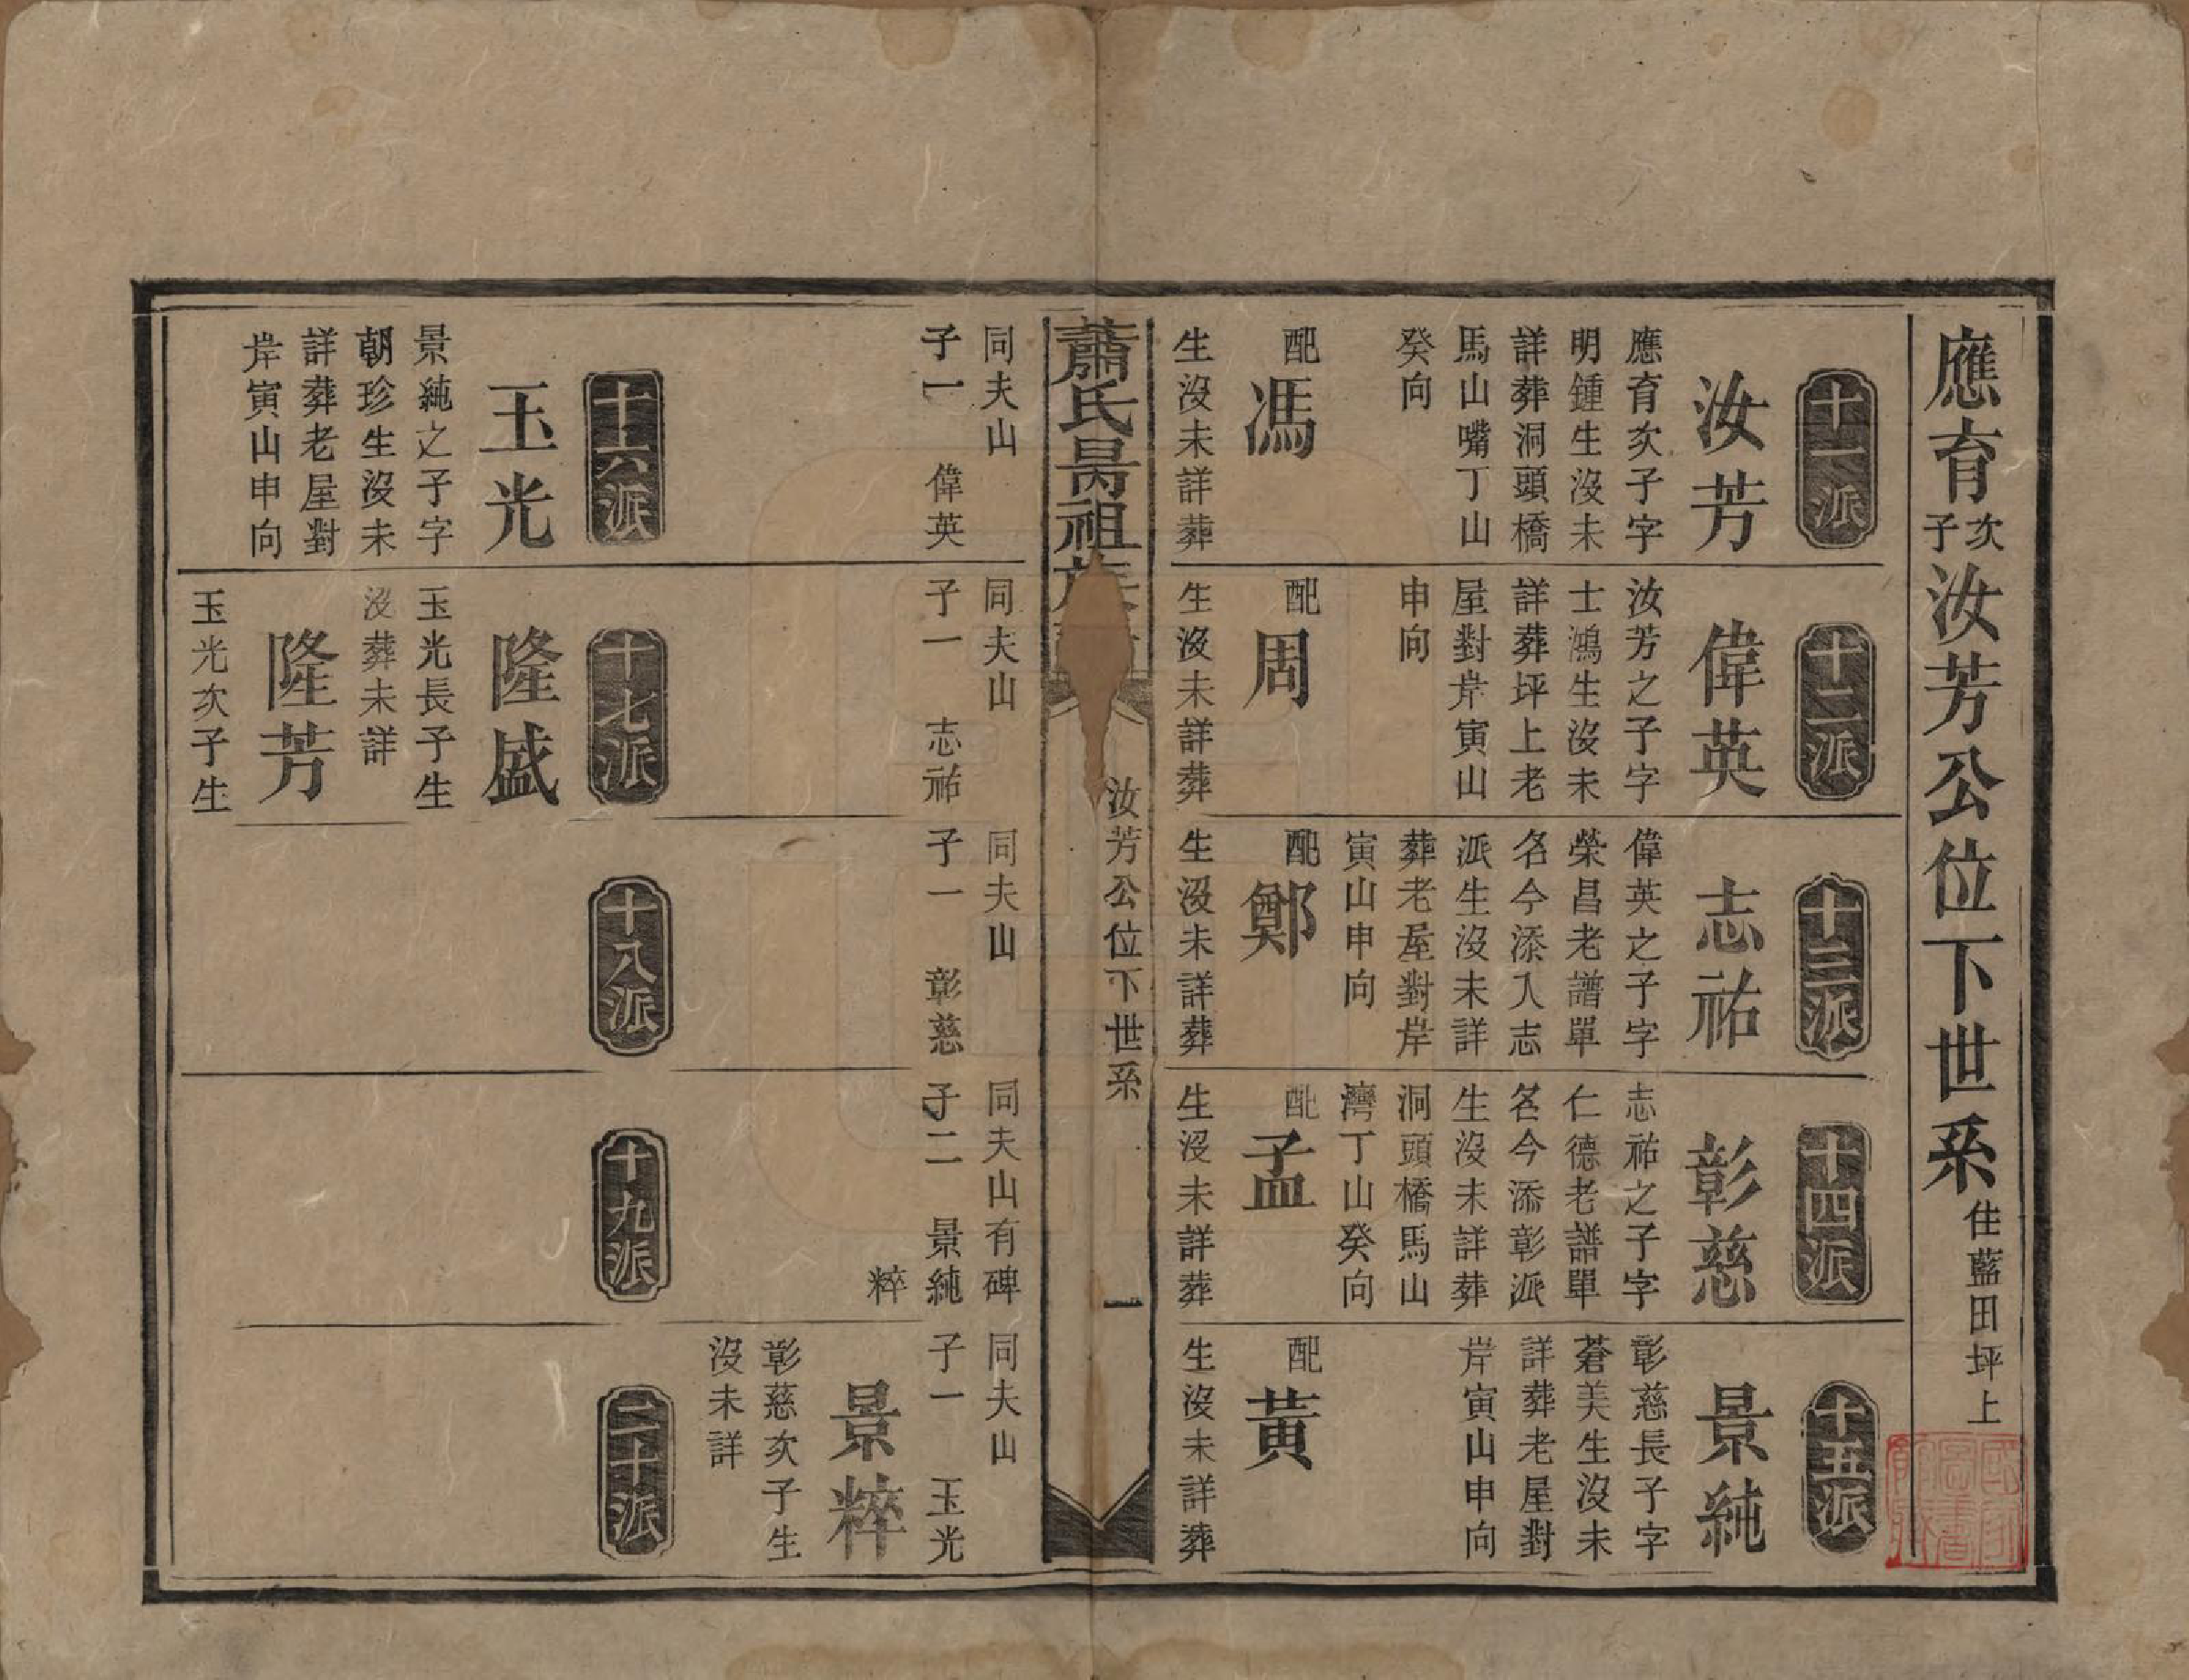 應育次子汝芳公位下世系住藍田坪上
十一派
汝芳
應育次子字
明鍾生沒未
詳葬洞頭橋
馬山嘴丁山
癸向
配
馮
生沒未詳葬
十二派
偉英
汝芳之子字
士鴻生沒未
詳葬坪上老
屋對岸寅山
申向
配
周
生沒未詳葬
十三派
志祐
偉英之子字
榮昌老譜單
名今添入志
派生沒未詳
葬老屋對岸
寅山申向
配
鄭
生沒未詳葬
十四派
彰慈
志祐之子字
仁德老譜單
名今添彰派
生沒未詳葬
洞頭橋馬山
灣丁山癸向
配
孟
生沒未詳葬
十五派
景純
彰慈長子字
蒼美生沒未
詳葬老屋對
岸寅山申向
配
黃
生沒未詳葬
蕭氏昺祖族
汝芳公位下世系
一
同夫山
子一 偉英
十六派
玉光
景純之子字
朝珍生沒未
詳葬老屋對
岸寅山申向
同夫山
子一 志祐
十七派
隆盛
玉光長子生
沒葬未詳
隆芳
玉光次子生
同夫山
子一 彰慈
十八派
同夫山有碑
子二 景純
粹
十九派
同夫山
子一 玉光
景粹
彰慈次子生
沒未詳
二十派